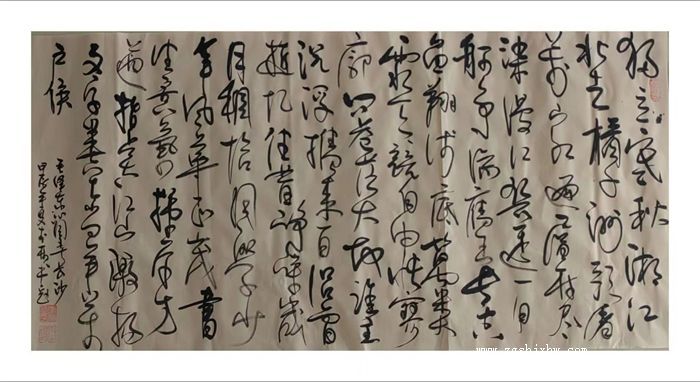 独立寒秋湘江
北去橘子洲头看
万山红遍层林尽
染漫江碧透百
舸争流鹰击长空
鱼翔浅底万类
霜天竞自由怅寥
廓问苍茫大地谁主
沉浮携来百侣曾
游忆往昔峥嵘岁
月稠恰同学少
年风华正茂书
生意气挥斥方
遒指点江山激扬
文字粪土当年万
户侯
毛泽东沁园春长沙
甲辰年夏
www.zgshjxhw.com